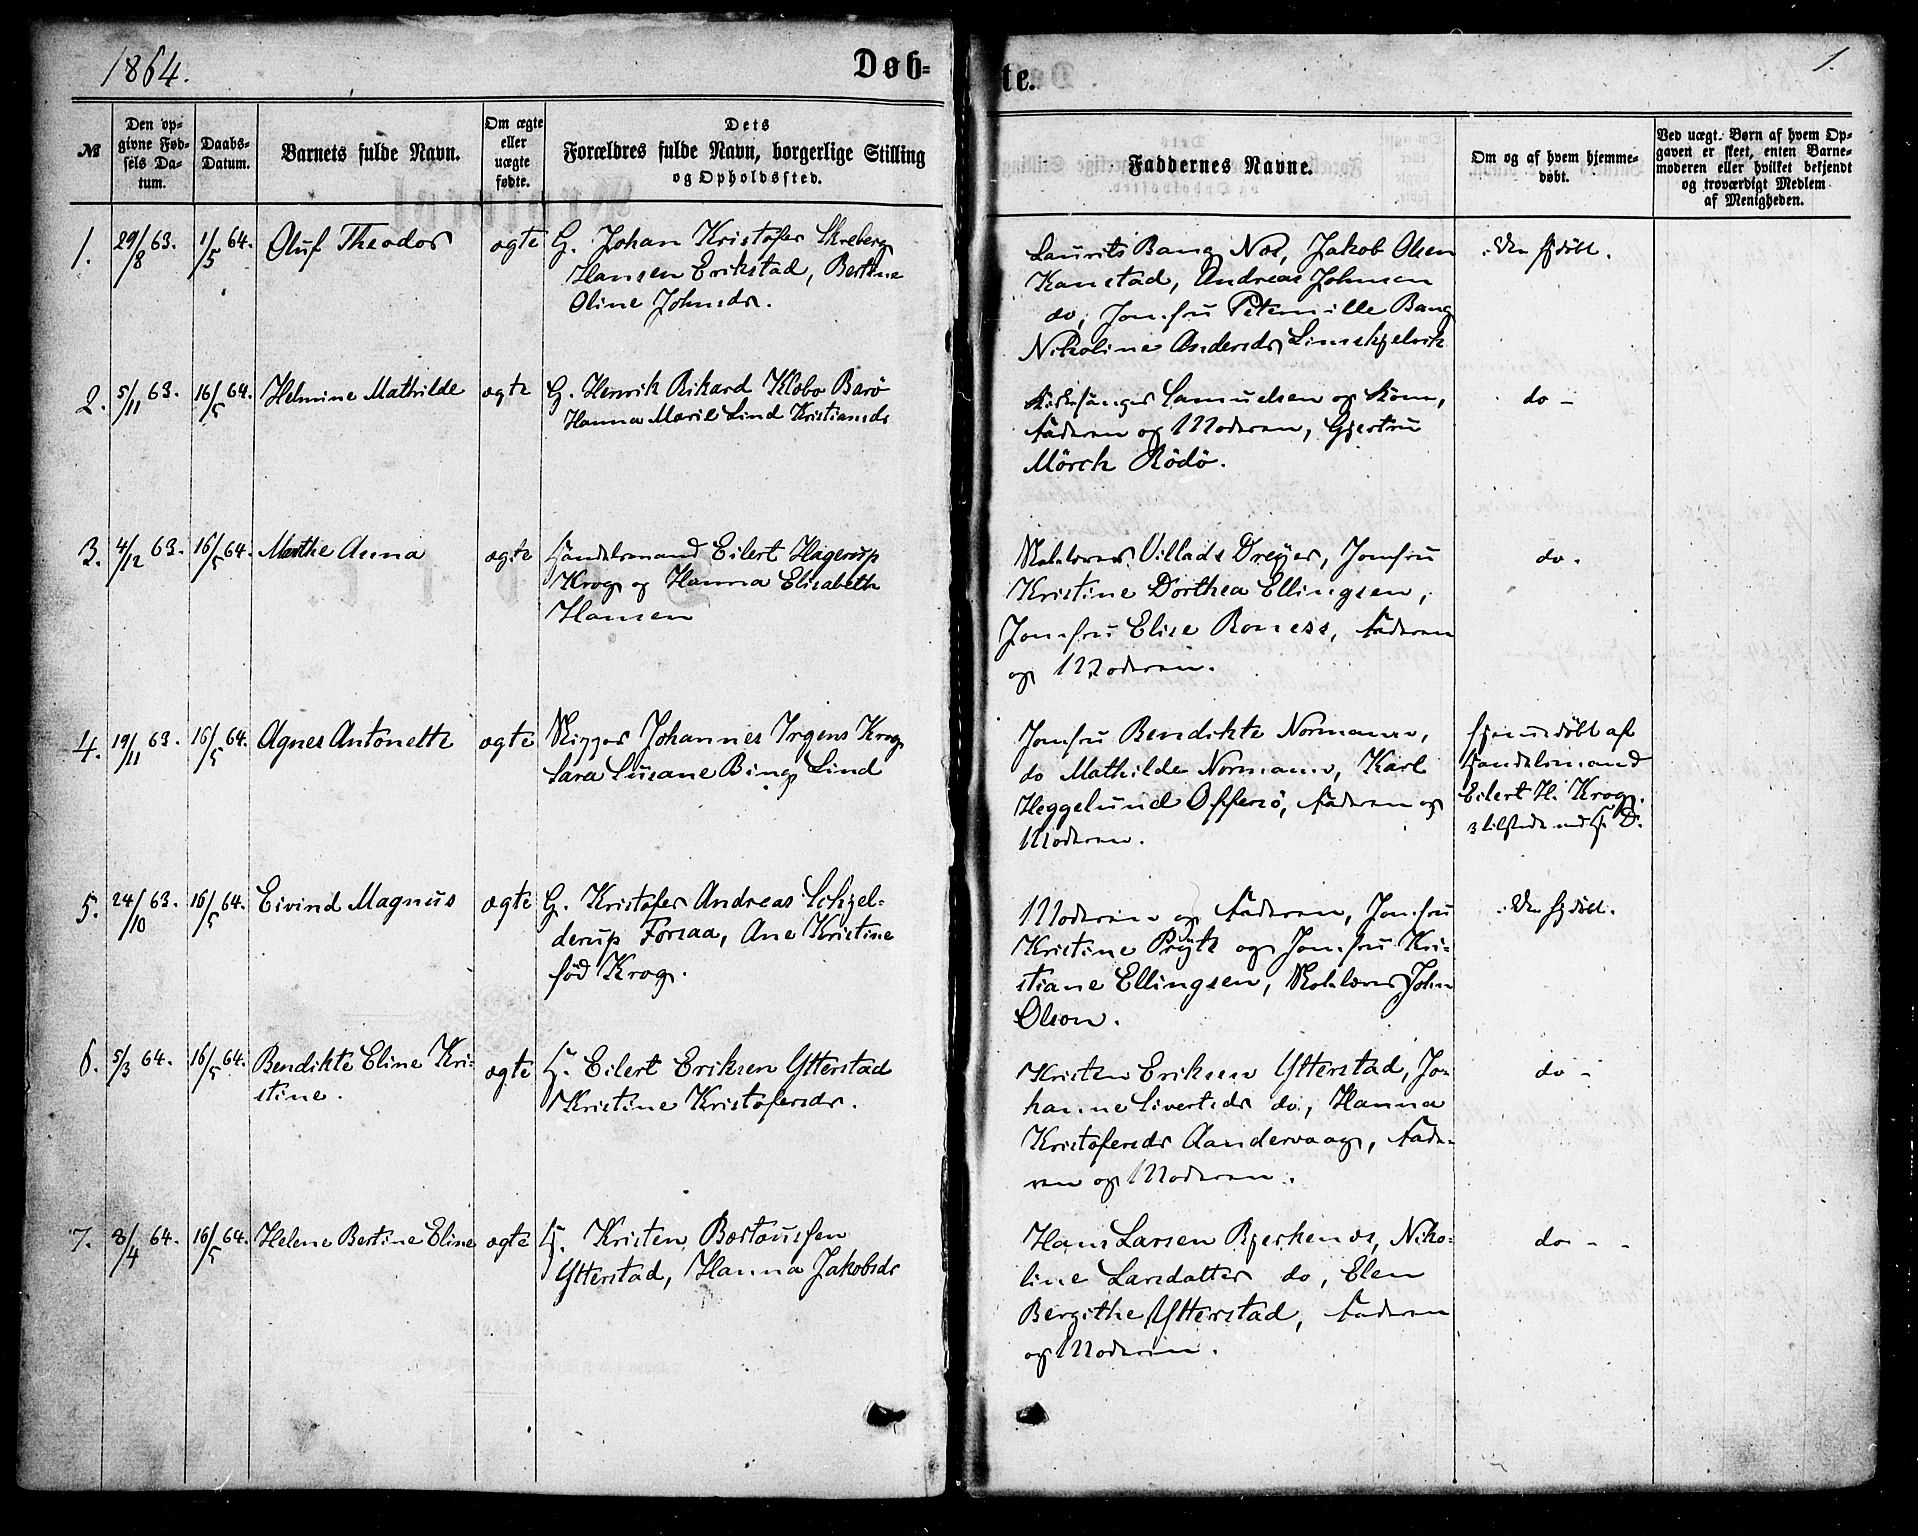 1864.
Døb=
te.
1.
№
Den op=
givne Fød=
sels Da=
tum.
Daabs=
Datum.
Barnets fulde Navn.
Om ægte
eller
uægte
fødte.
Dets
Forældres fulde Navn, borgerlige Stilling
og Opholdssted.
Faddernes Navne.
Om og af hvem hjemme=
døbt.
Ved uægt. Børn af hvem Op=
gaven er skeet, enten Barne=
moderen eller hvilket bekjendt
og troværdigt Medlem
af Menigheden.
1. 29/8 63. 1/5 64. Oluf Theodor ægte G. Johan Kristofer Skreberg
Hansen Erikstad, Bertine
Oline Johnsdr.
Laurits Bang Næs, Jakob Olsen
Kanstad, Andreas Johnsen
do, Jomfru Peternille Bang
Nikoline Andersdr
hjdøbt.
2. 5/11 63. 16/5 64. Helmine Mathilde ægte G. Henrik Rikard Klæbo Barø
Hanna Marie Lind Kristiansdr
Kirkesanger Samuelsen og Kone,
Faderen og Moderen, Gjertru
Mörch Rödö.
do -
3. 4/12 63. 16/5 64. Marthe Anna ægte Handelsmand Eilert Hagerup
Krog og Hanna Elisabeth
Hansen
Skolelærer Villads Dreyer, Jomfru
Kristine Dorthea Ellingsen,
Jomfru Elise Roness, Faderen
og Moderen.
do.
4. 19/11 63. 16/5 64. Agnes Antonette ægte Skipper Johannes Irgens Krog
Sara Susane Bing Lind
Jomfru Bendikte Normann,
do Mathilde Normann, Karl
Heggelund Offersö, Faderen og
Moderen.
hjemmedöbt af
Handelsmand
Eilert H. Krog.
5. 24/10 63. 16/5 64. Eivind Magnus ægte G. Kristofer Andreas Schjel-
derup Forsaa, Ane Kristine
föd Krog.
Moderen og Faderen, Jomfru
Kristine Prytz og Jomfru Kri-
stiane Ellingsen, Skolelærer John
Olson.
hjdöbt.
6. 5/3 64. 16/5 64. Bendikte Eline Kri-
stine.
ægte H. Eilert Eriksen Ytterstad
Kristine Kristofersdr.
Kristen Eriksen Ytterstad, Jo-
hanne Sivertsdr do, Hanna
Kristofersdr Aandervaag, Fade-
ren og Moderen.
do -
7. 8/4 64. 16/5 64. Helene Bertine Eline ægte H. Kristen
Ytterstad, Hanna Jakobsdr
Hans Larsen Bjerkenæs, Niko-
line Larsdatter do, Elen
Bergithe Ytterstad, Faderen
og Moderen.
do - -